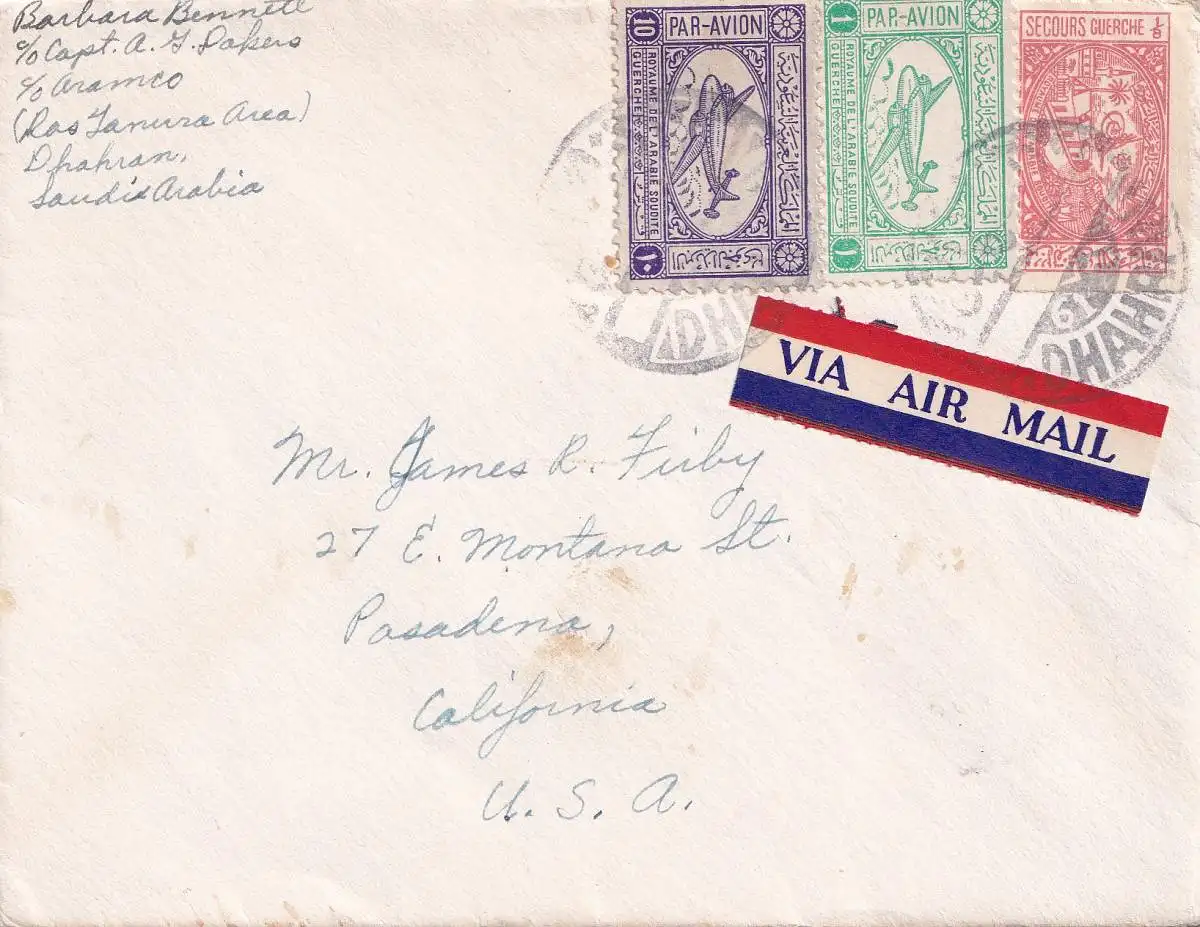 Barbara Bennett
c/o Capt. A. G. Dakers
c/o Aramco
(Ras Tanura Area)
Dhahran,
Saudia Arabia
10
PAR-AVION
ROYAUME DE L'ARABIE SOUDITE
GUERCHE
١٠
1
PAR-AVION
ROYAUME DE L'ARABIE SOUDITE
GUERCHE
١
SECOURS GUERCHE 1/8
DHAHR
VIA AIR MAIL
Mr. James R. Firby
27 E. Montana St.
Pasadena,
California
U. S. A.